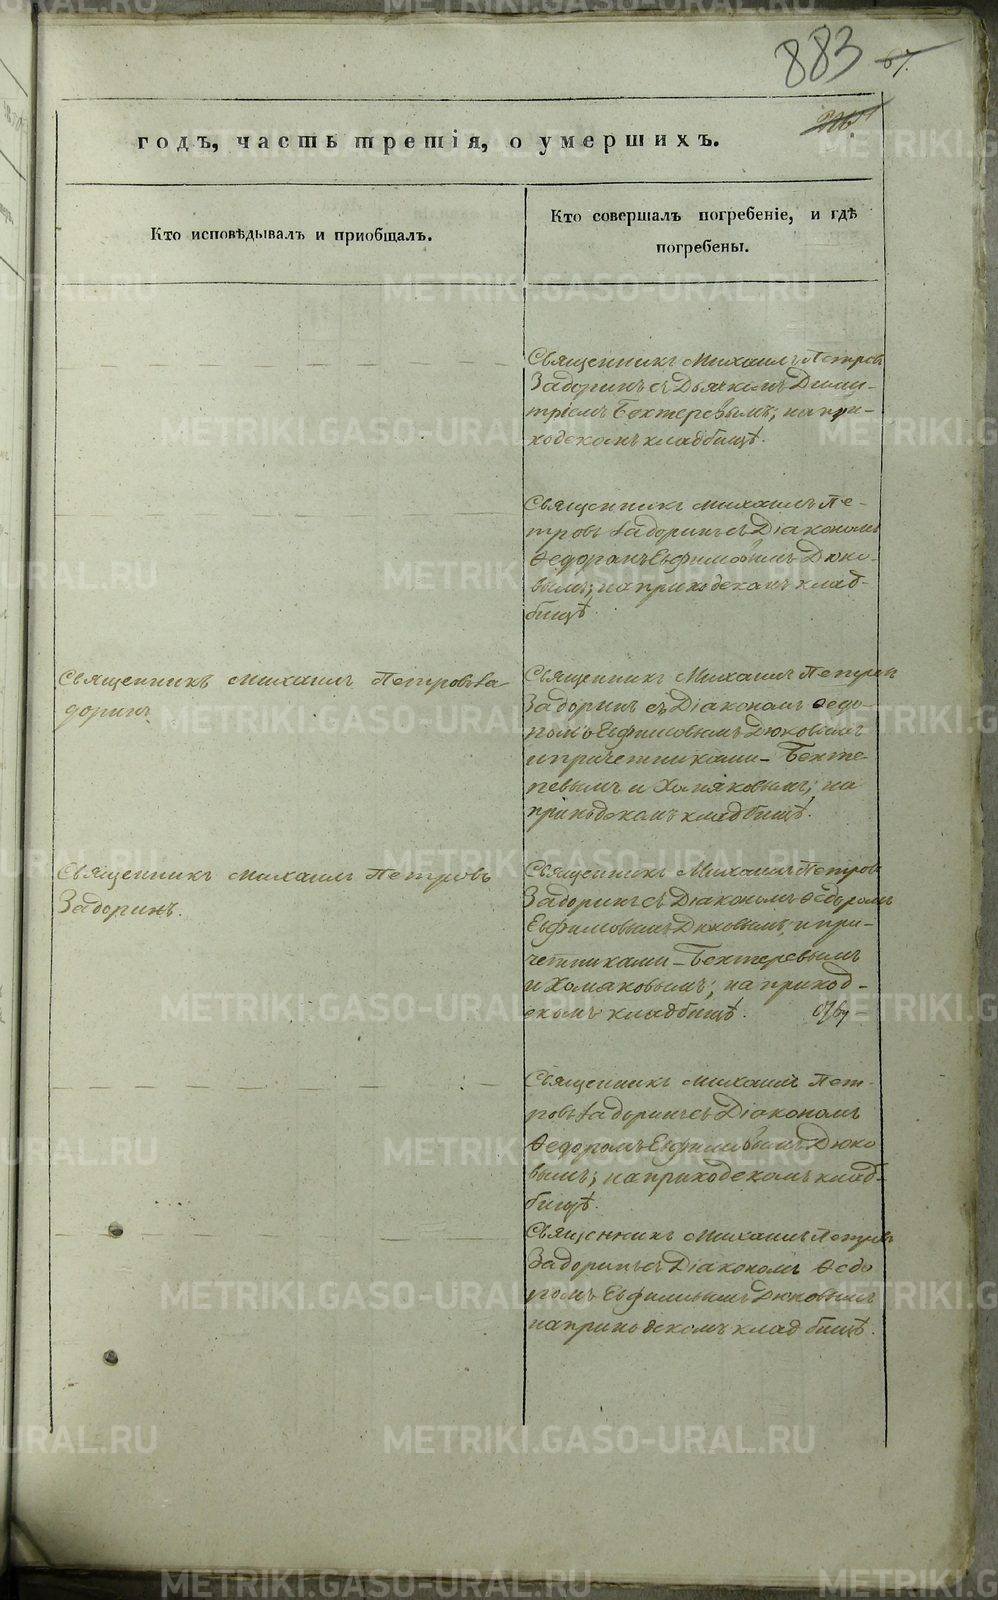 883 67.
годъ, часть третія, о умершихъ.
Кто исповѣдывалъ и приобщалъ.
Кто совершалъ погребеніе, и гдѣ
погребены.
Священникъ Михаилъ Петровъ
Задоринъ съ Дьячкомъ Дими-
тріемъ Бехтеревымъ; на при-
ходскомъ кладбищѣ.
Священникъ Михаилъ Пе-
тровъ Задоринъ съ Діакономъ
Ѳедоромъ Евфимовымъ Дюко-
вымъ; на приходскомъ клад-
бищѣ.
Священникъ Михаилъ Петровъ За-
доринъ
Священникъ Михаилъ Петровъ
Задоринъ съ Діакономъ Ѳедо-
ромъ Евфимовымъ Дюковымъ
и причетниками – Бехте-
ревымъ и Хомяковымъ; на
приходскомъ кладбищѣ.
Священникъ Михаилъ Петровъ
Задоринъ.
Священникъ Михаилъ Петровъ
Задоринъ съ Діакономъ Ѳедоромъ
Евфимовымъ Дюковымъ, и при-
четниками – Бехтеревымъ
и Хомяковымъ; на приход-
скомъ кладбищѣ.
Священникъ Михаилъ Пет-
ровъ Задоринъ съ Діакономъ
Ѳедоромъ Евфимовымъ Дюко
вымъ; на приходскомъ клад-
бищѣ.
Священникъ Михаилъ Петровъ
Задоринъ съ Діакономъ Ѳедо
ромъ Евфимовымъ Дюковымъ
на приходскомъ кладбищѣ.
METRIKI.GASO-URAL.RU